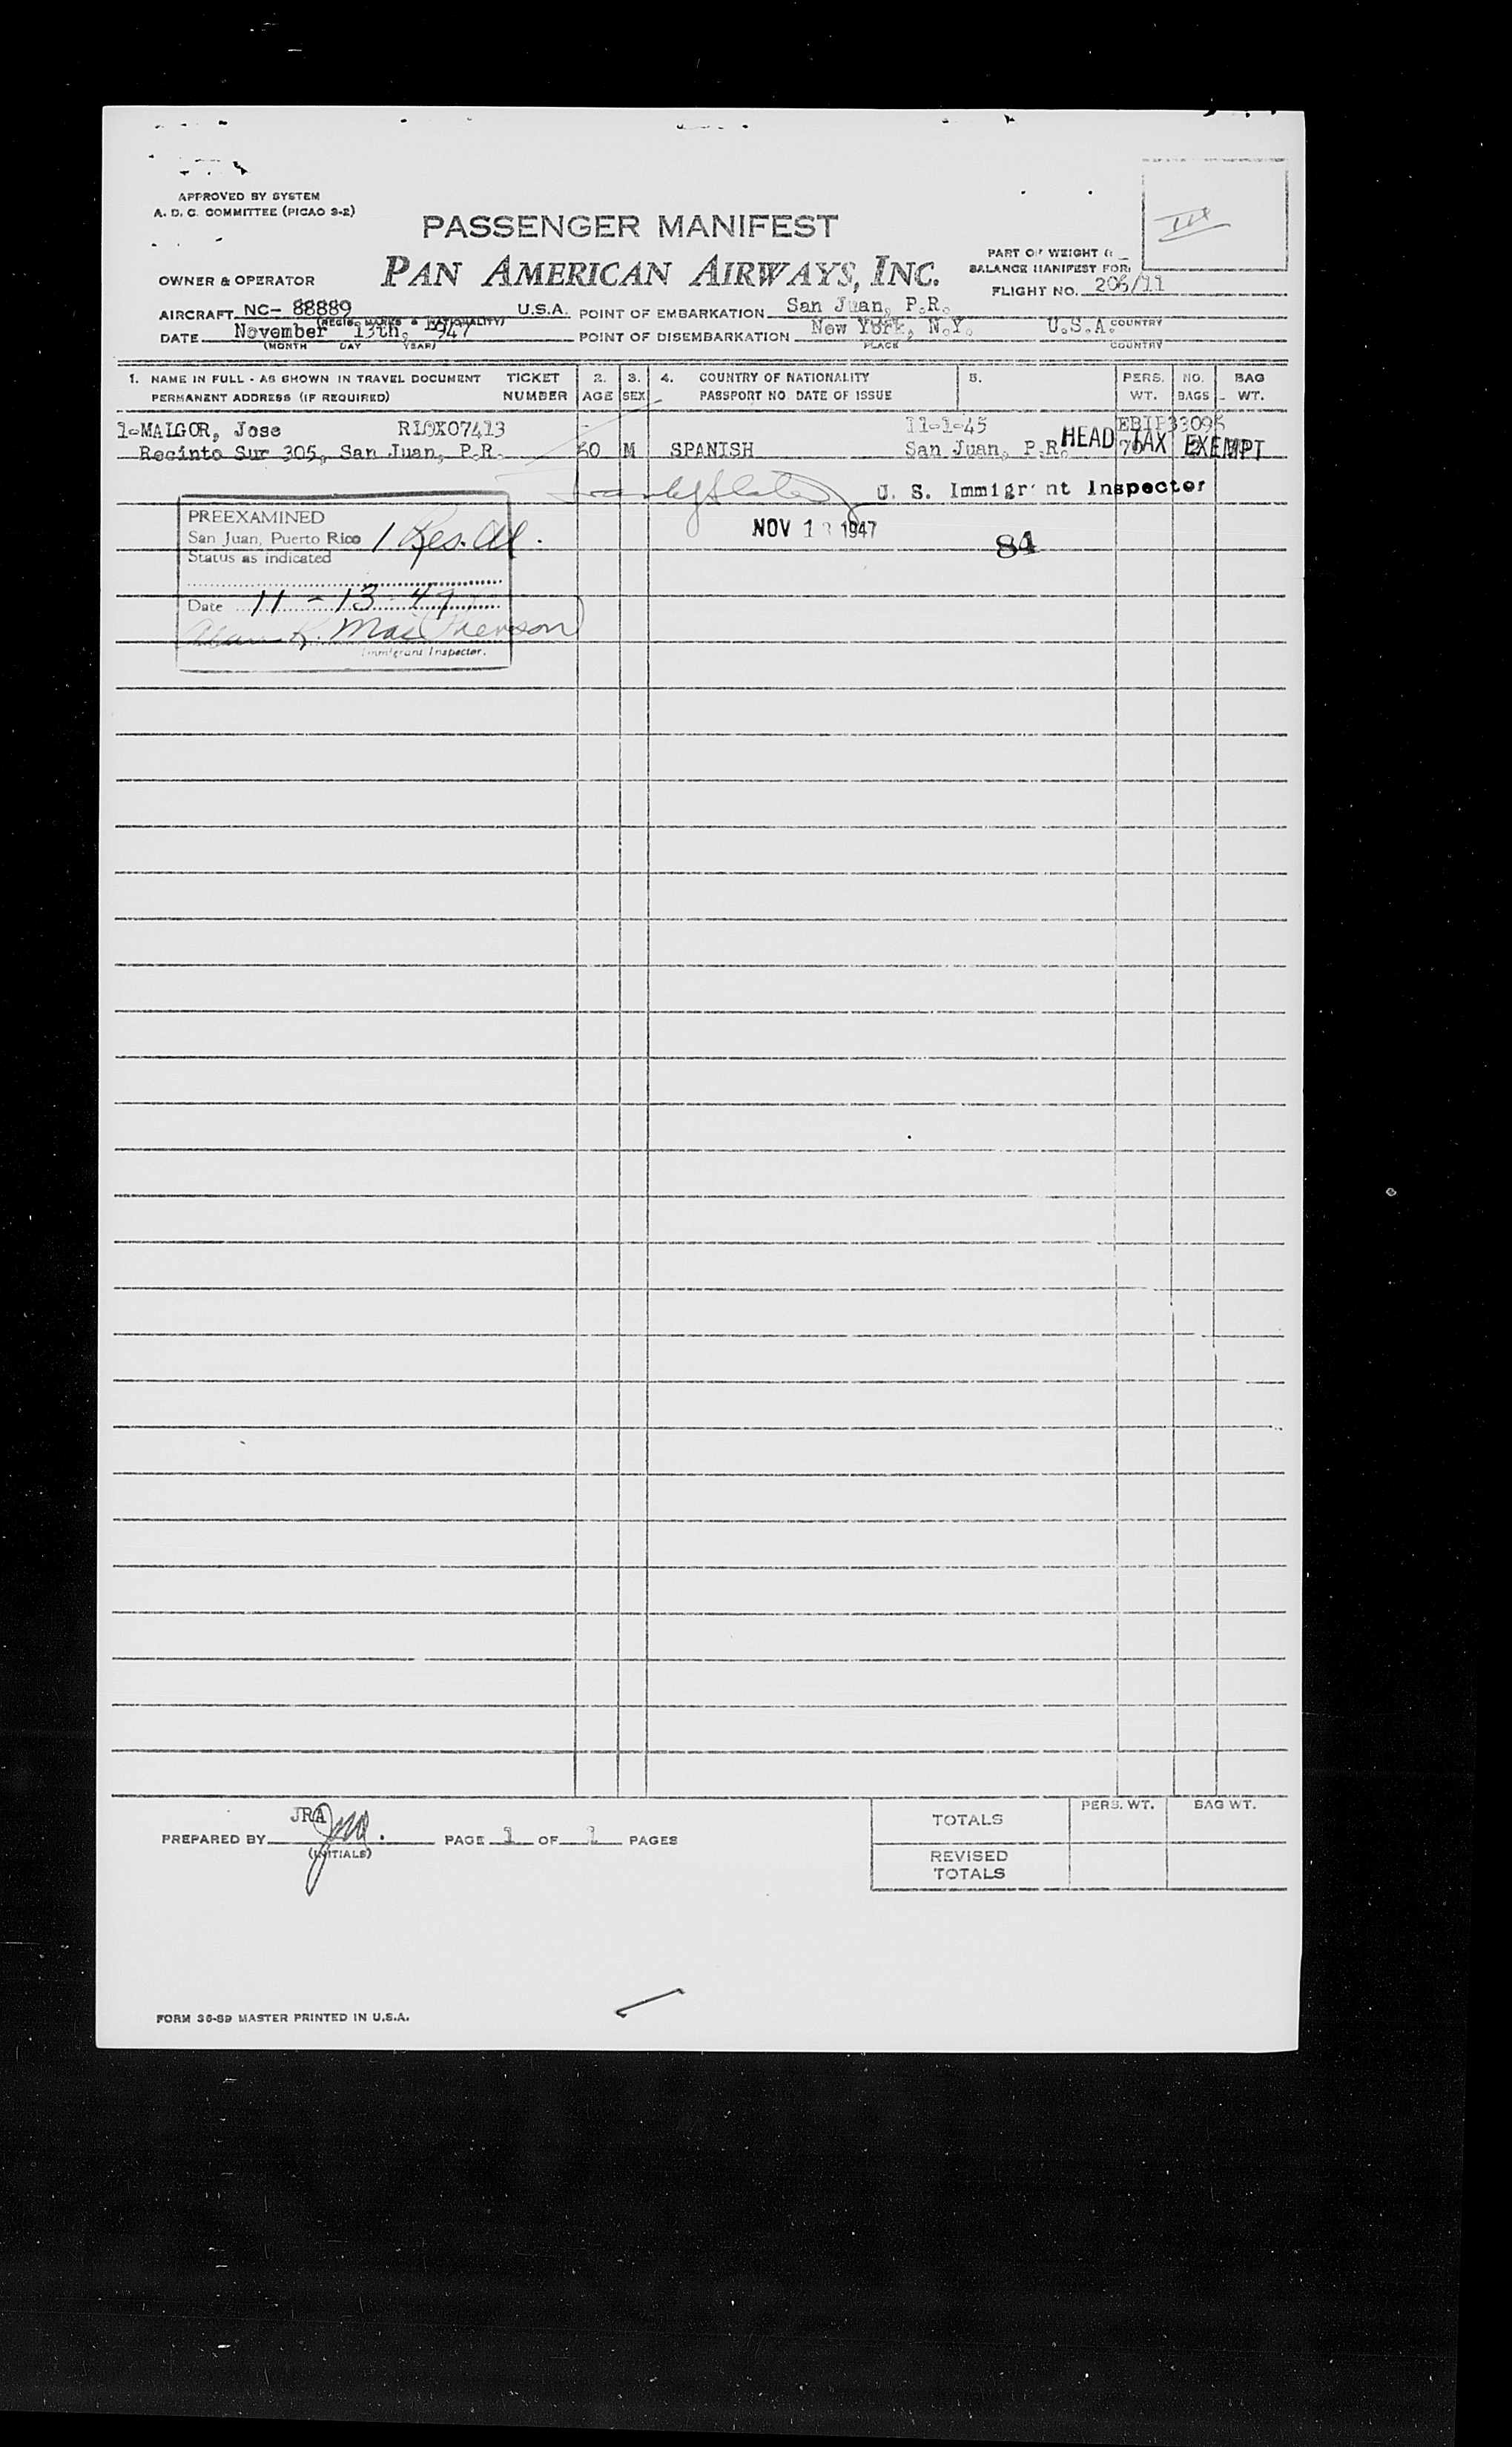 APPROVED BY SYSTEM
A. D. C. COMMITTEE (PICAO S-2)
PASSENGER MANIFEST
PAN AMERICAN AIRWAYS, INC.
III
OWNER & OPERATOR
PART OF WEIGHT &
BALANCE MANIFEST FOR:
FLIGHT NO. 206/11
AIRCRAFT NC- 88889 U.S.A. POINT OF EMBARKATION San Juan, P.R.
(REGIS. MARKS & NATIONALITY) COUNTRY
DATE November 13th, 1947 POINT OF DISEMBARKATION New York, N.Y. U.S.A.
(MONTH DAY YEAR) PLACE COUNTRY
1. NAME IN FULL - AS SHOWN IN TRAVEL DOCUMENT TICKET 2. 3. 4. COUNTRY OF NATIONALITY 5. PERS. NO. BAG
PERMANENT ADDRESS (IF REQUIRED) NUMBER AGE SEX PASSPORT NO. DATE OF ISSUE WT. BAGS WT.
1-MALGOR, Jose R10X07413 11-1-45
Recinto Sur 305, San Juan, P.R. M SPANISH San Juan, P.R. HEAD TAX EXEMPT
U. S. Immigrant Inspector
NOV 13 1947
84
PREEXAMINED
San Juan, Puerto Rico 1 Res. Al.
Status as indicated
Date 11-13-47
K. MacPherson
Immigrant Inspector.
JRA
PREPARED BY PAGE 1 OF 1 PAGES
(INITIALS)
PERS. WT. BAG WT.
TOTALS
REVISED
TOTALS
FORM 36-69 MASTER PRINTED IN U.S.A.